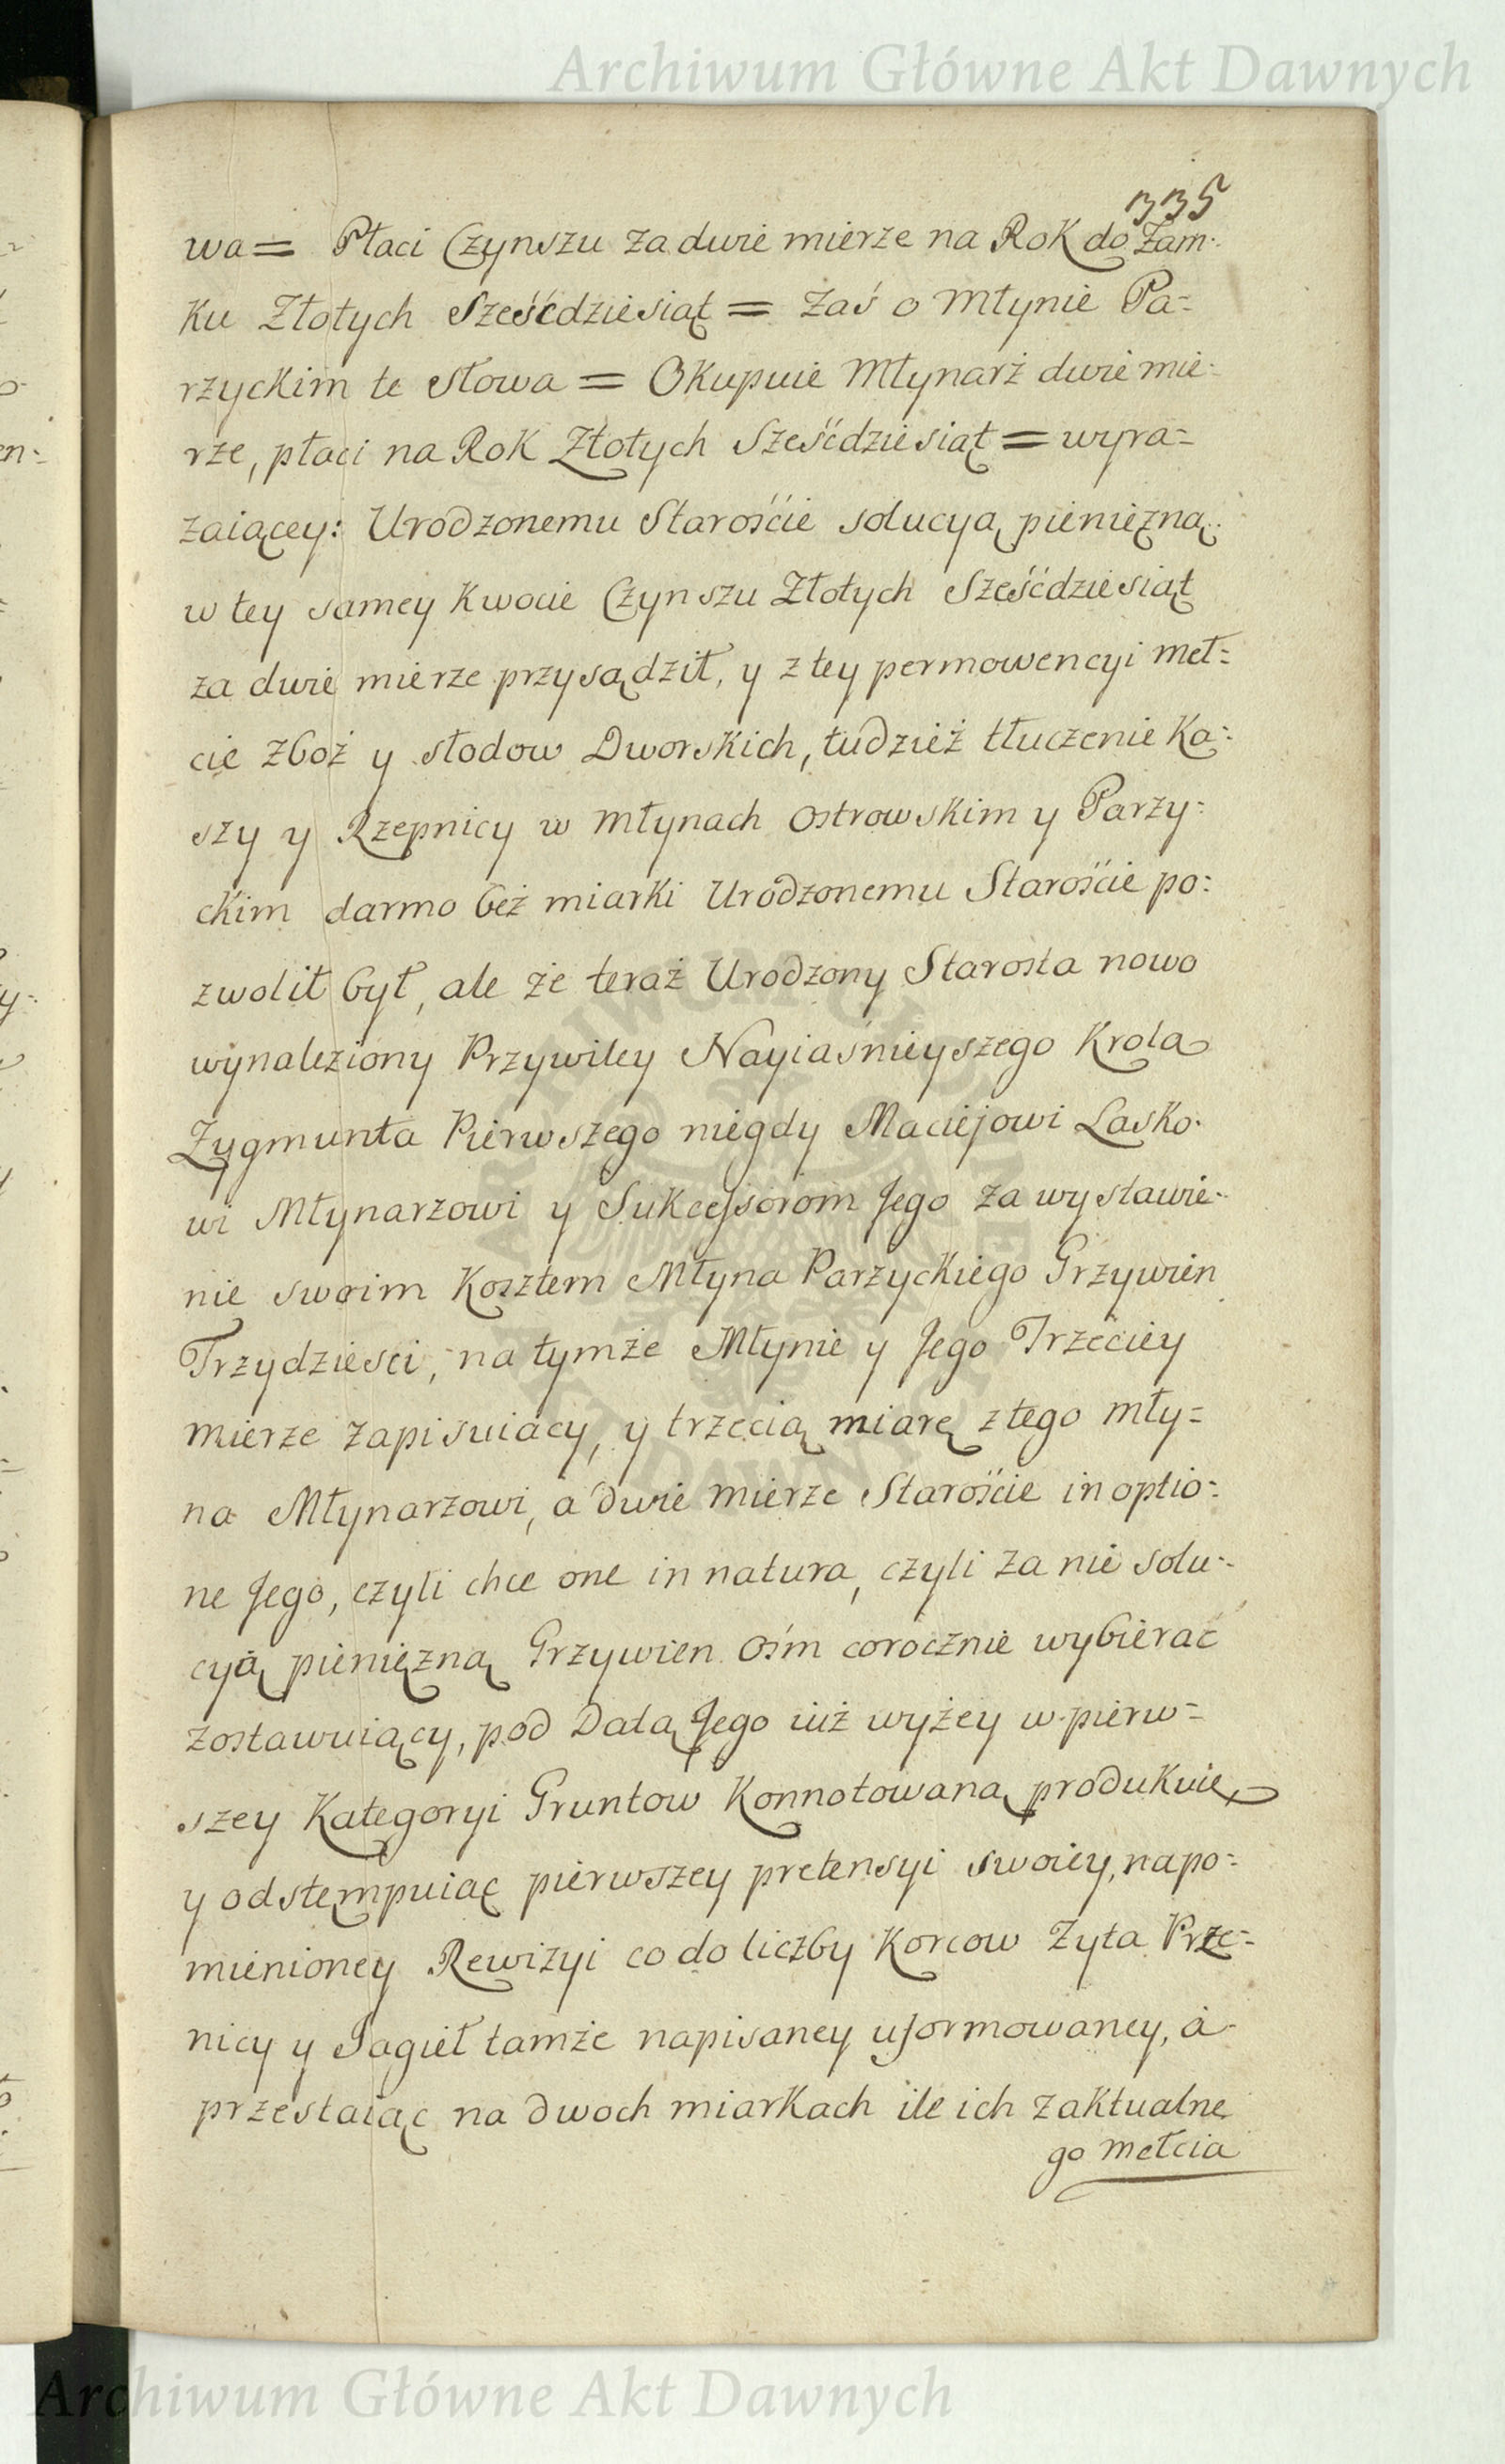 Archiwum Główne Akt Dawnych
335
wa= Płaci Czynszu za dwie mierze na Rok do Zam-
ku Złotych Sześćdziesiąt = Zaś o Młynie Pa=
rzyckim te słowa = Okupuie Młynarż dwie mie-
rze, płaci na Rok Złotych Sześćdziesiąt = wyra=
zaiącey: Urodzonemu Starośćie solucyą pienięzną
w tey samey Kwocie Czynszu Złotych Sześćdziesiąt
za dwie mierze przysądził, y z tey permowencyi meł=
cie zboż y słodow Dworskich, tudzież tłuczenie Ka=
szy y Rzepnicy w Młynach Ostrowskim y Parzy=
ckim darmo beż miarki Urodzonemu Starośćie po=
zwolił był, ale że teraż Urodzony Starosta nowo
wynaleziony Przywiley Nayiaśnieyszego Krola
Zygmunta Pierwszego niegdy Maciejowi Lasko-
wi Młynarzowi y Sukcessorom Jego za wystawie-
nie swoim Kosztem Młyna Parzyckiego Grzywien
Trzydziesci, na tymże Młynie y Jego Trzeciey
mierze zapisuiący, y trzecią miarę z tego mły=
na Młynarzowi, a dwie mierze Starośćie in optio=
ne Jego, czyli chce one in natura, czyli za nie solu=
cyą pienięzną Grzywien Ośm corocznie wybierać
zostawuiący, pod Datą Jego iuż wyżey w pierw=
szey Kategoryi Gruntow Konnotowaną produkuie,
y odstempuiąc pierwszey pretensyi swoiey, na po=
mienioney Rewizyi co do liczby Korcow Zyta Prze=
nicy y Jagieł tamże napisaney uformowaney, a
przestaiąc na dwoch miarkach ile ich z aktualne
go mełcia
Archiwum Główne Akt Dawnych